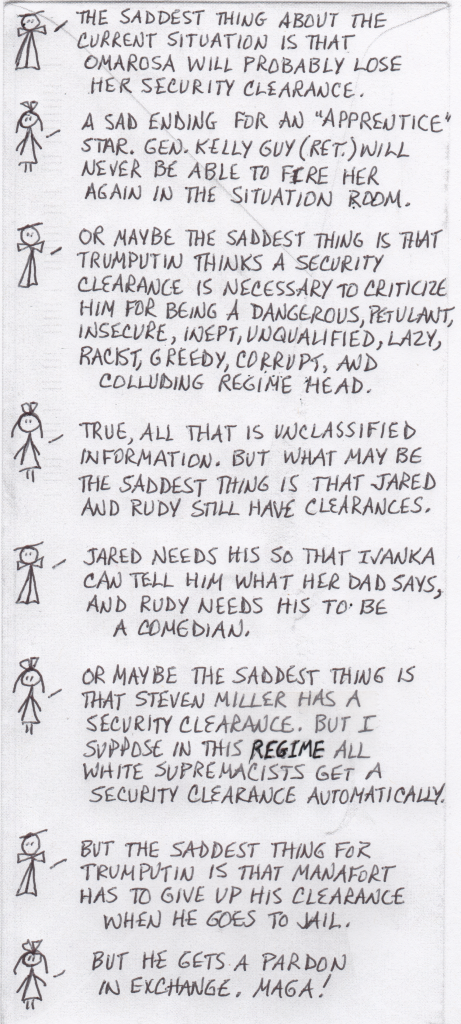 THE SADDEST THING ABOUT THE
CURRENT SITUATION IS THAT
OMAROSA WILL PROBABLY LOSE
HER SECURITY CLEARANCE.
A SAD ENDING FOR AN "APPRENTICE"
STAR. GEN. KELLY GUY (RET.) WILL
NEVER BE ABLE TO FIRE HER
AGAIN IN THE SITUATION ROOM.
OR MAYBE THE SADDEST THING IS THAT
TRUMPUTIN THINKS A SECURITY
CLEARANCE IS NECESSARY TO CRITICIZE
HIM FOR BEING A DANGEROUS, PETULANT,
INSECURE, INEPT, UNQUALIFIED, LAZY,
RACIST, GREEDY, CORRUPT, AND
COLLUDING REGIME HEAD.
TRUE, ALL THAT IS UNCLASSIFIED
INFORMATION. BUT WHAT MAY BE
THE SADDEST THING IS THAT JARED
AND RUDY STILL HAVE CLEARANCES.
JARED NEEDS HIS SO THAT IVANKA
CAN TELL HIM WHAT HER DAD SAYS,
AND RUDY NEEDS HIS TO BE
A COMEDIAN.
OR MAYBE THE SADDEST THING IS
THAT STEVEN MILLER HAS A
SECURITY CLEARANCE. BUT I
SUPPOSE IN THIS REGIME ALL
WHITE SUPREMACISTS GET A
SECURITY CLEARANCE AUTOMATICALLY.
BUT THE SADDEST THING FOR
TRUMPUTIN IS THAT MANAFORT
HAS TO GIVE UP HIS CLEARANCE
WHEN HE GOES TO JAIL.
BUT HE GETS A PARDON
IN EXCHANGE. MAGA!